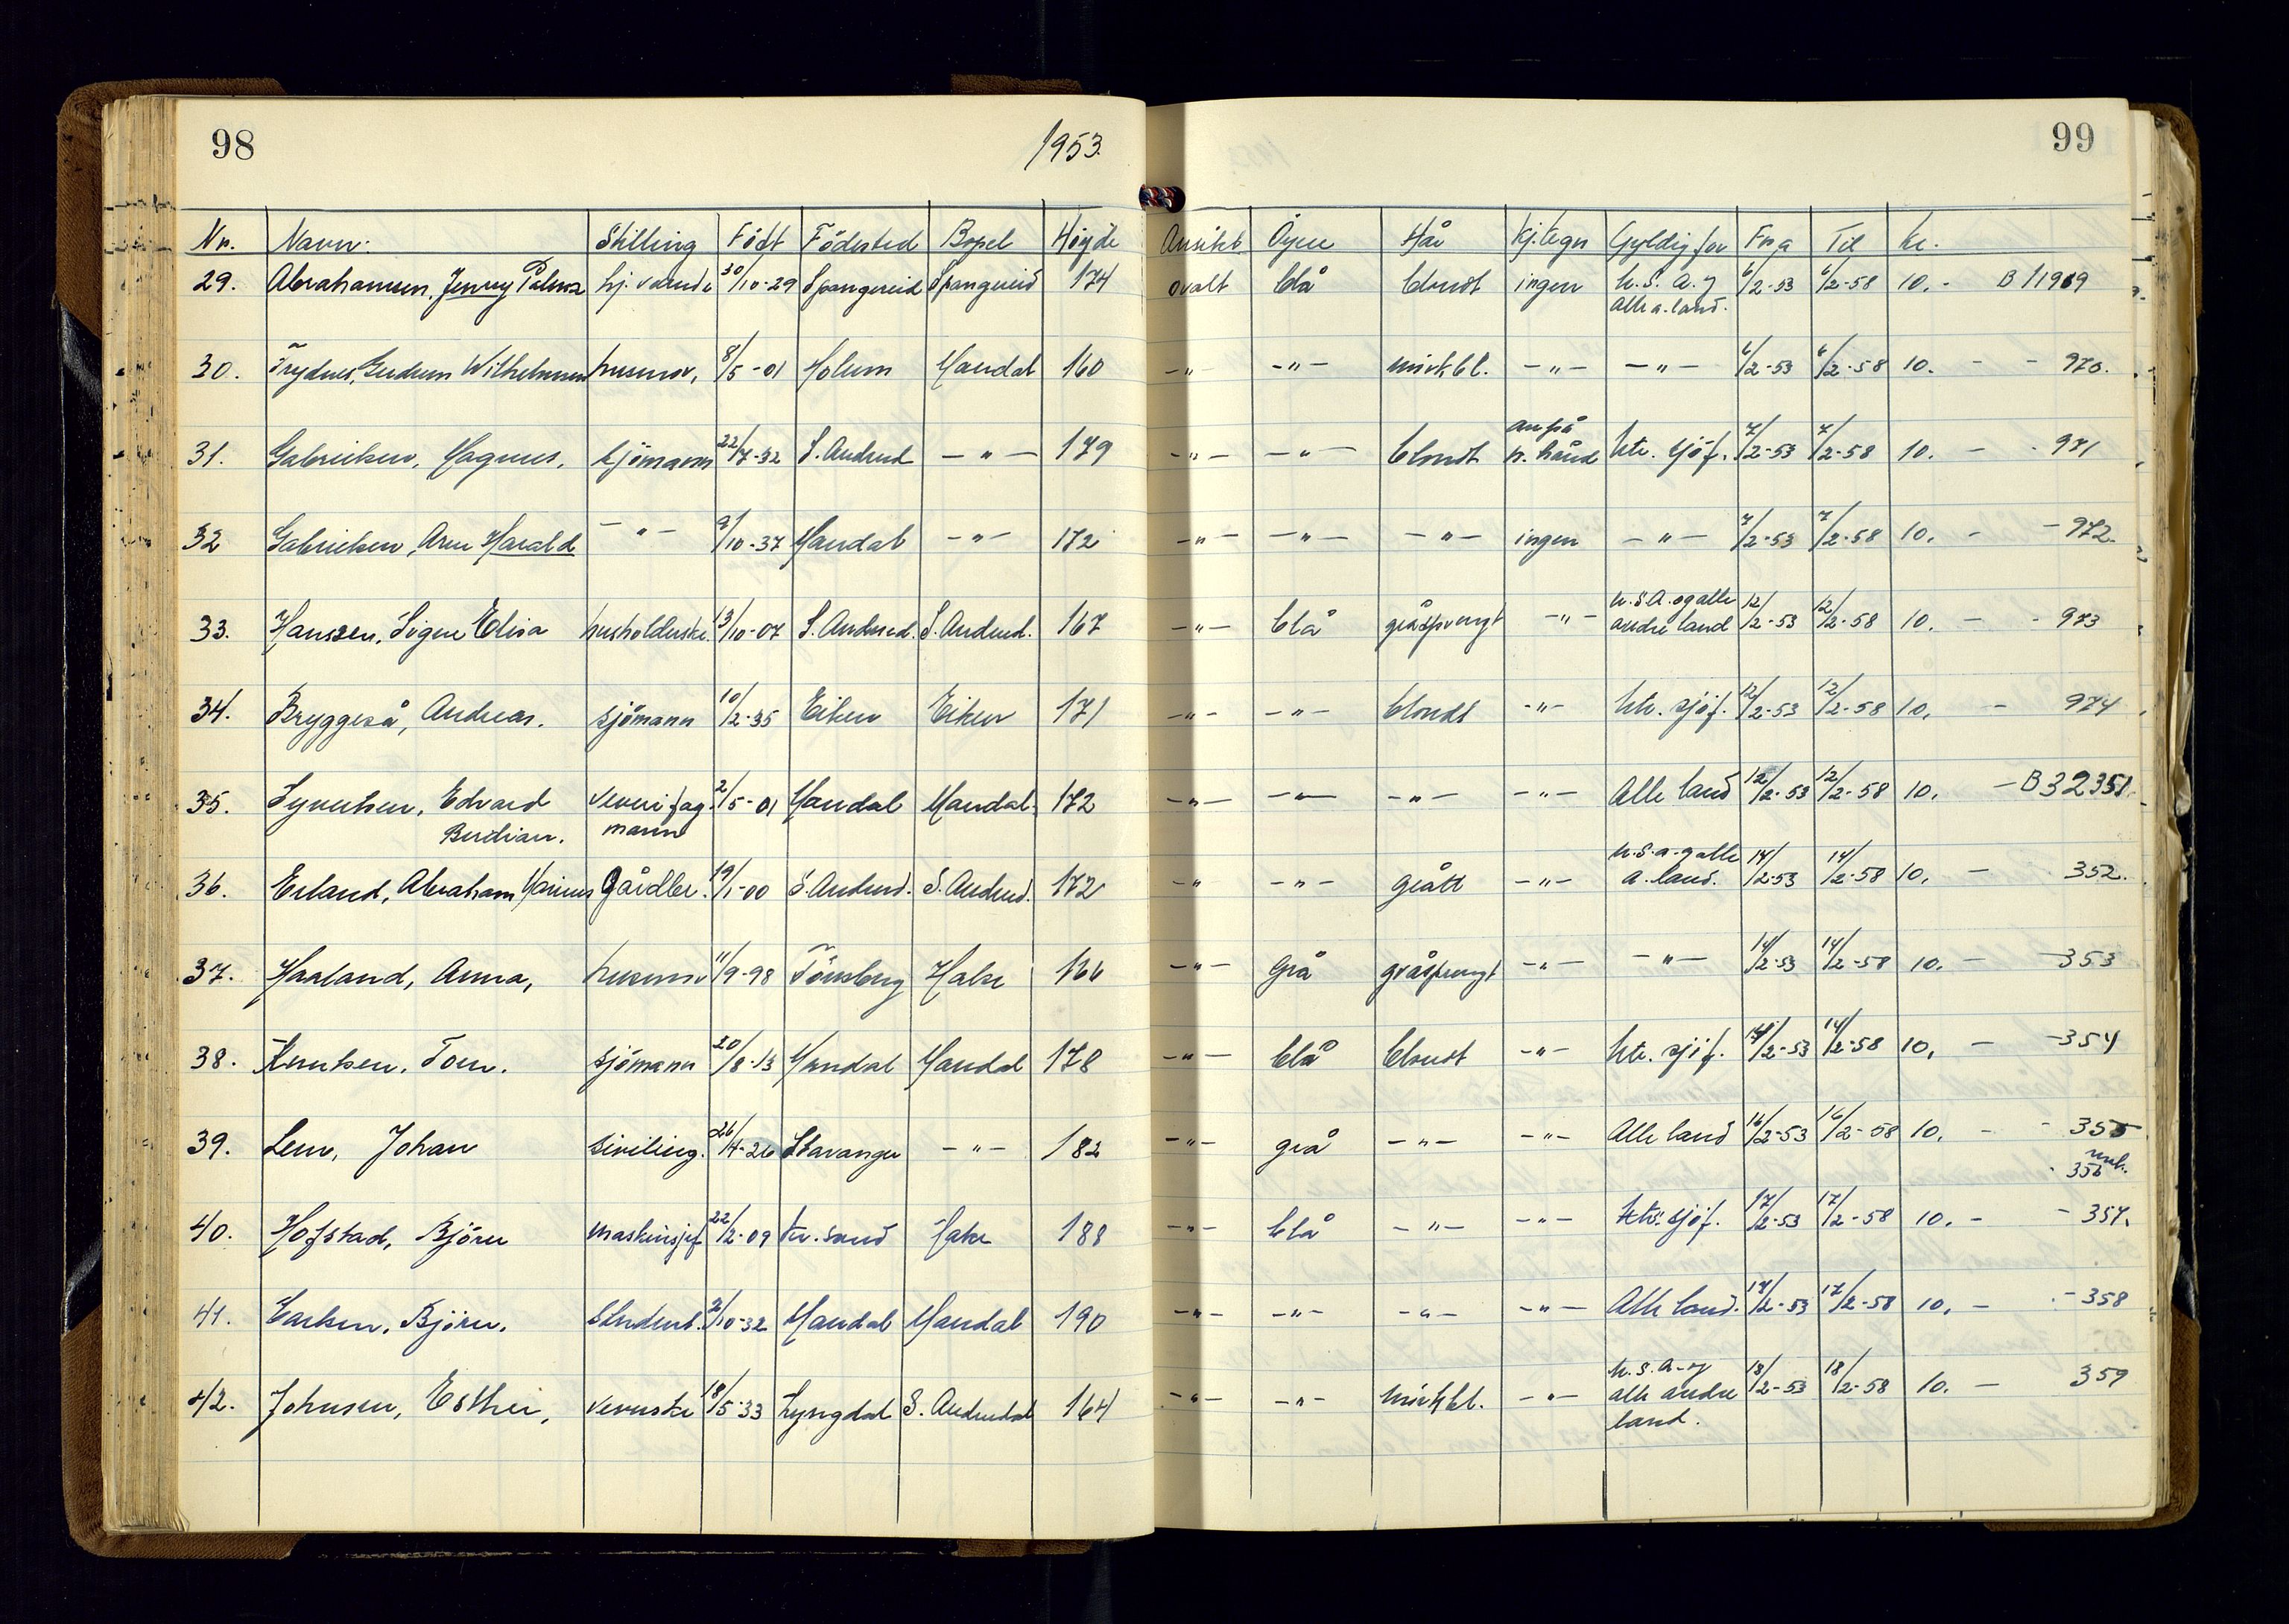 98
1953.
99
Nr. Navn: Stilling Födt Födested Bopel Höyde Ansikt Öyne Hår Kj.tegn Gyldig for Fra Til Kr.
29. Abrahamsen, Jenny Palma hj. værende 30/10-29 Spangereid Spangereid 174 ovalt blå blondt ingen U.S.A. og 6/2-53 6/2-58 10.- B 11969
Alle a. land.
30. Trydnes, Gudrun Wilhelmsen husmor, 8/5-01 Holum Mandal 160 -"- -"- mörkbl. -"- -"- 6/2-53 6/2-58 10. - - 970.
31. Gabrielsen, Magnus. Sjömann 22/7-32 S. Audned -"- 179 -"- -"- blondt arr på 7/2-53 7/2-58 10. - - 971
h. hånd utr. sjöf.
32 Gabrielsen, Arne Harald -"- 9/10-37 Mandal -"- 172 -"- -"- -"- ingen -"- 7/2-53 7/2-58 10. - - 972.
33. Hanssen, Signe Elisa husholderske 13/10-07 S. Audned. S. Audned. 167 -"- blå gråsprengt -"- U.S.A. og alle 12/2-53 12/2-58 10. - - 973
andre land
34. Bryggeså, Andreas. sjömann 10/2-35 Eiken Eiken 171 -"- -"- blondt -"- utr. sjöf. 12/2-53 12/2-58 10. - 974
35. Syvertsen, Edvard veverifag- 2/5-01 Mandal Mandal 172 -"- -"- -"- -"- Alle land 12/2-53 12/2-58 10. - B 32351.
Berdian. mann
36. Erland, Abraham Marius gårdbr. 19/1-00 S. Audned. S. Audned. 172 -"- -"- grått -"- U.S.A. og alle 14/2-53 14/2-58 10. - 352.
a. land.
37. Haaland, Anna, husmor 11/9-98 Tönsberg Halse 166 -"- Grå gråsprengt -"- -"- 14/2-53 14/2-58 10. - -353
38. Knutsen, Tom. sjömann 20/8-13 Mandal Mandal 178 -"- blå blondt -"- utr. sjöf. 14/2-53 14/2-58 10. - -354
39. Lem, Johan siviling. 26/4-26 Stavanger -"- 182 -"- grå -"- -"- Alle land 16/2-53 16/2-58 10. - - 355
mak.
- 356
40. Hofstad, Björn maskinsjef 22/2-09 Kr.sand Halse 188 -"- blå -"- -"- utr. sjöf. 17/2-53 17/2-58 10. - - 357.
41. Carlsen, Björn. Student. 2/10-32 Mandal Mandal 190 -"- -"- -"- -"- Alle land. 17/2-53 17/2-58 10. - - 358
42. Johnsen, Esther, veverske 18/5-33 Lyngdal S. Audnedal 164 -"- -"- mörkbl. -"- U.S.A. og 18/2-53 18/2-58 10. - 359
alle andre
land.